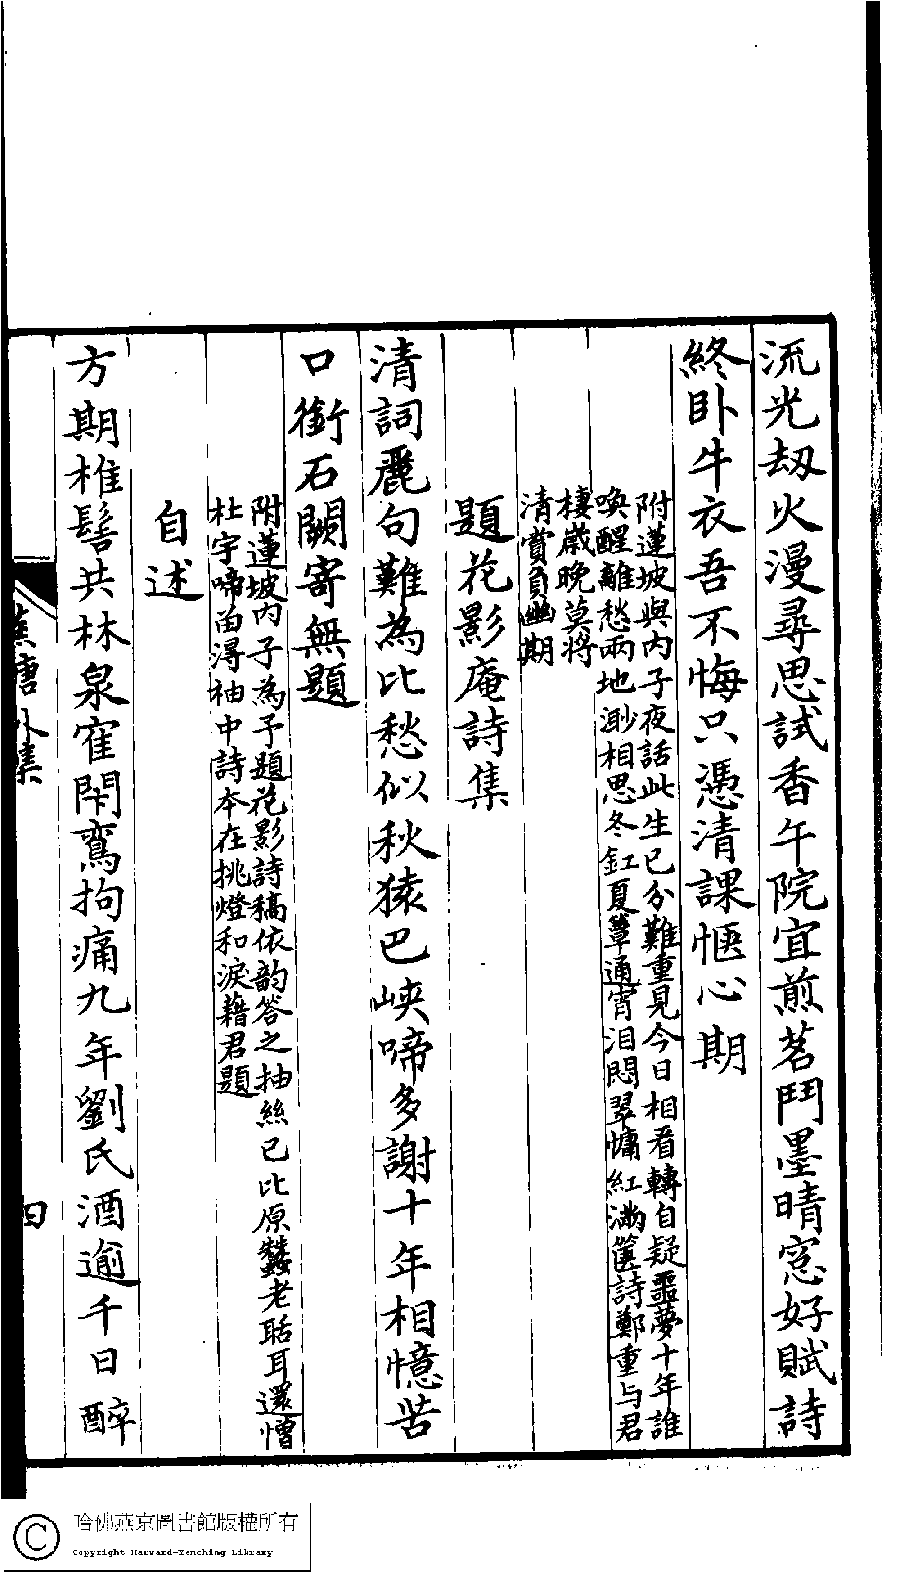 流光劫火漫尋思試香午院宜煎茗鬥墨晴窓好賦詩
終卧牛衣吾不悔只憑清課愜心期
附蓮坡與内子夜話此生已分難重見今日相看轉自疑噩夢十年誰
喚醒離愁兩地渺相思冬釭夏簟通宵泪悶翠慵紅滿篋詩鄭重与君
棲歲晚莫將
清賞負幽期
題花影庵詩集
清詞麗句難為比愁似秋猿巴峽啼多謝十年相憶苦
口銜石闕寄無題
附蓮坡内子為予題花影詩稿依韵答之抽絲已比原蠶老聒耳還憎
杜宇啼留得袖中詩本在挑燈和淚藉君題
自述
方期椎髻共林泉寉閇鸞拘痛九年劉氏酒逾千日醉
蕉唐外集
四
哈佛燕京圖書館版權所有
Copyright Harvard-Yenching Library